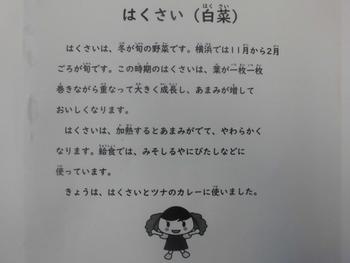 はくさい（白菜）
はくさいは、冬が旬の野菜です。横浜では11月から2月
ごろが旬です。この時期のはくさいは、葉が一枚一枚
巻きながら重なって大きく成長し、あまみが増して
おいしくなります。
はくさいは、加熱するとあまみがでて、やわらかく
なります。給食では、みそしるやにびたしなどに
使っています。
きょうは、はくさいとツナのカレーに使いました。